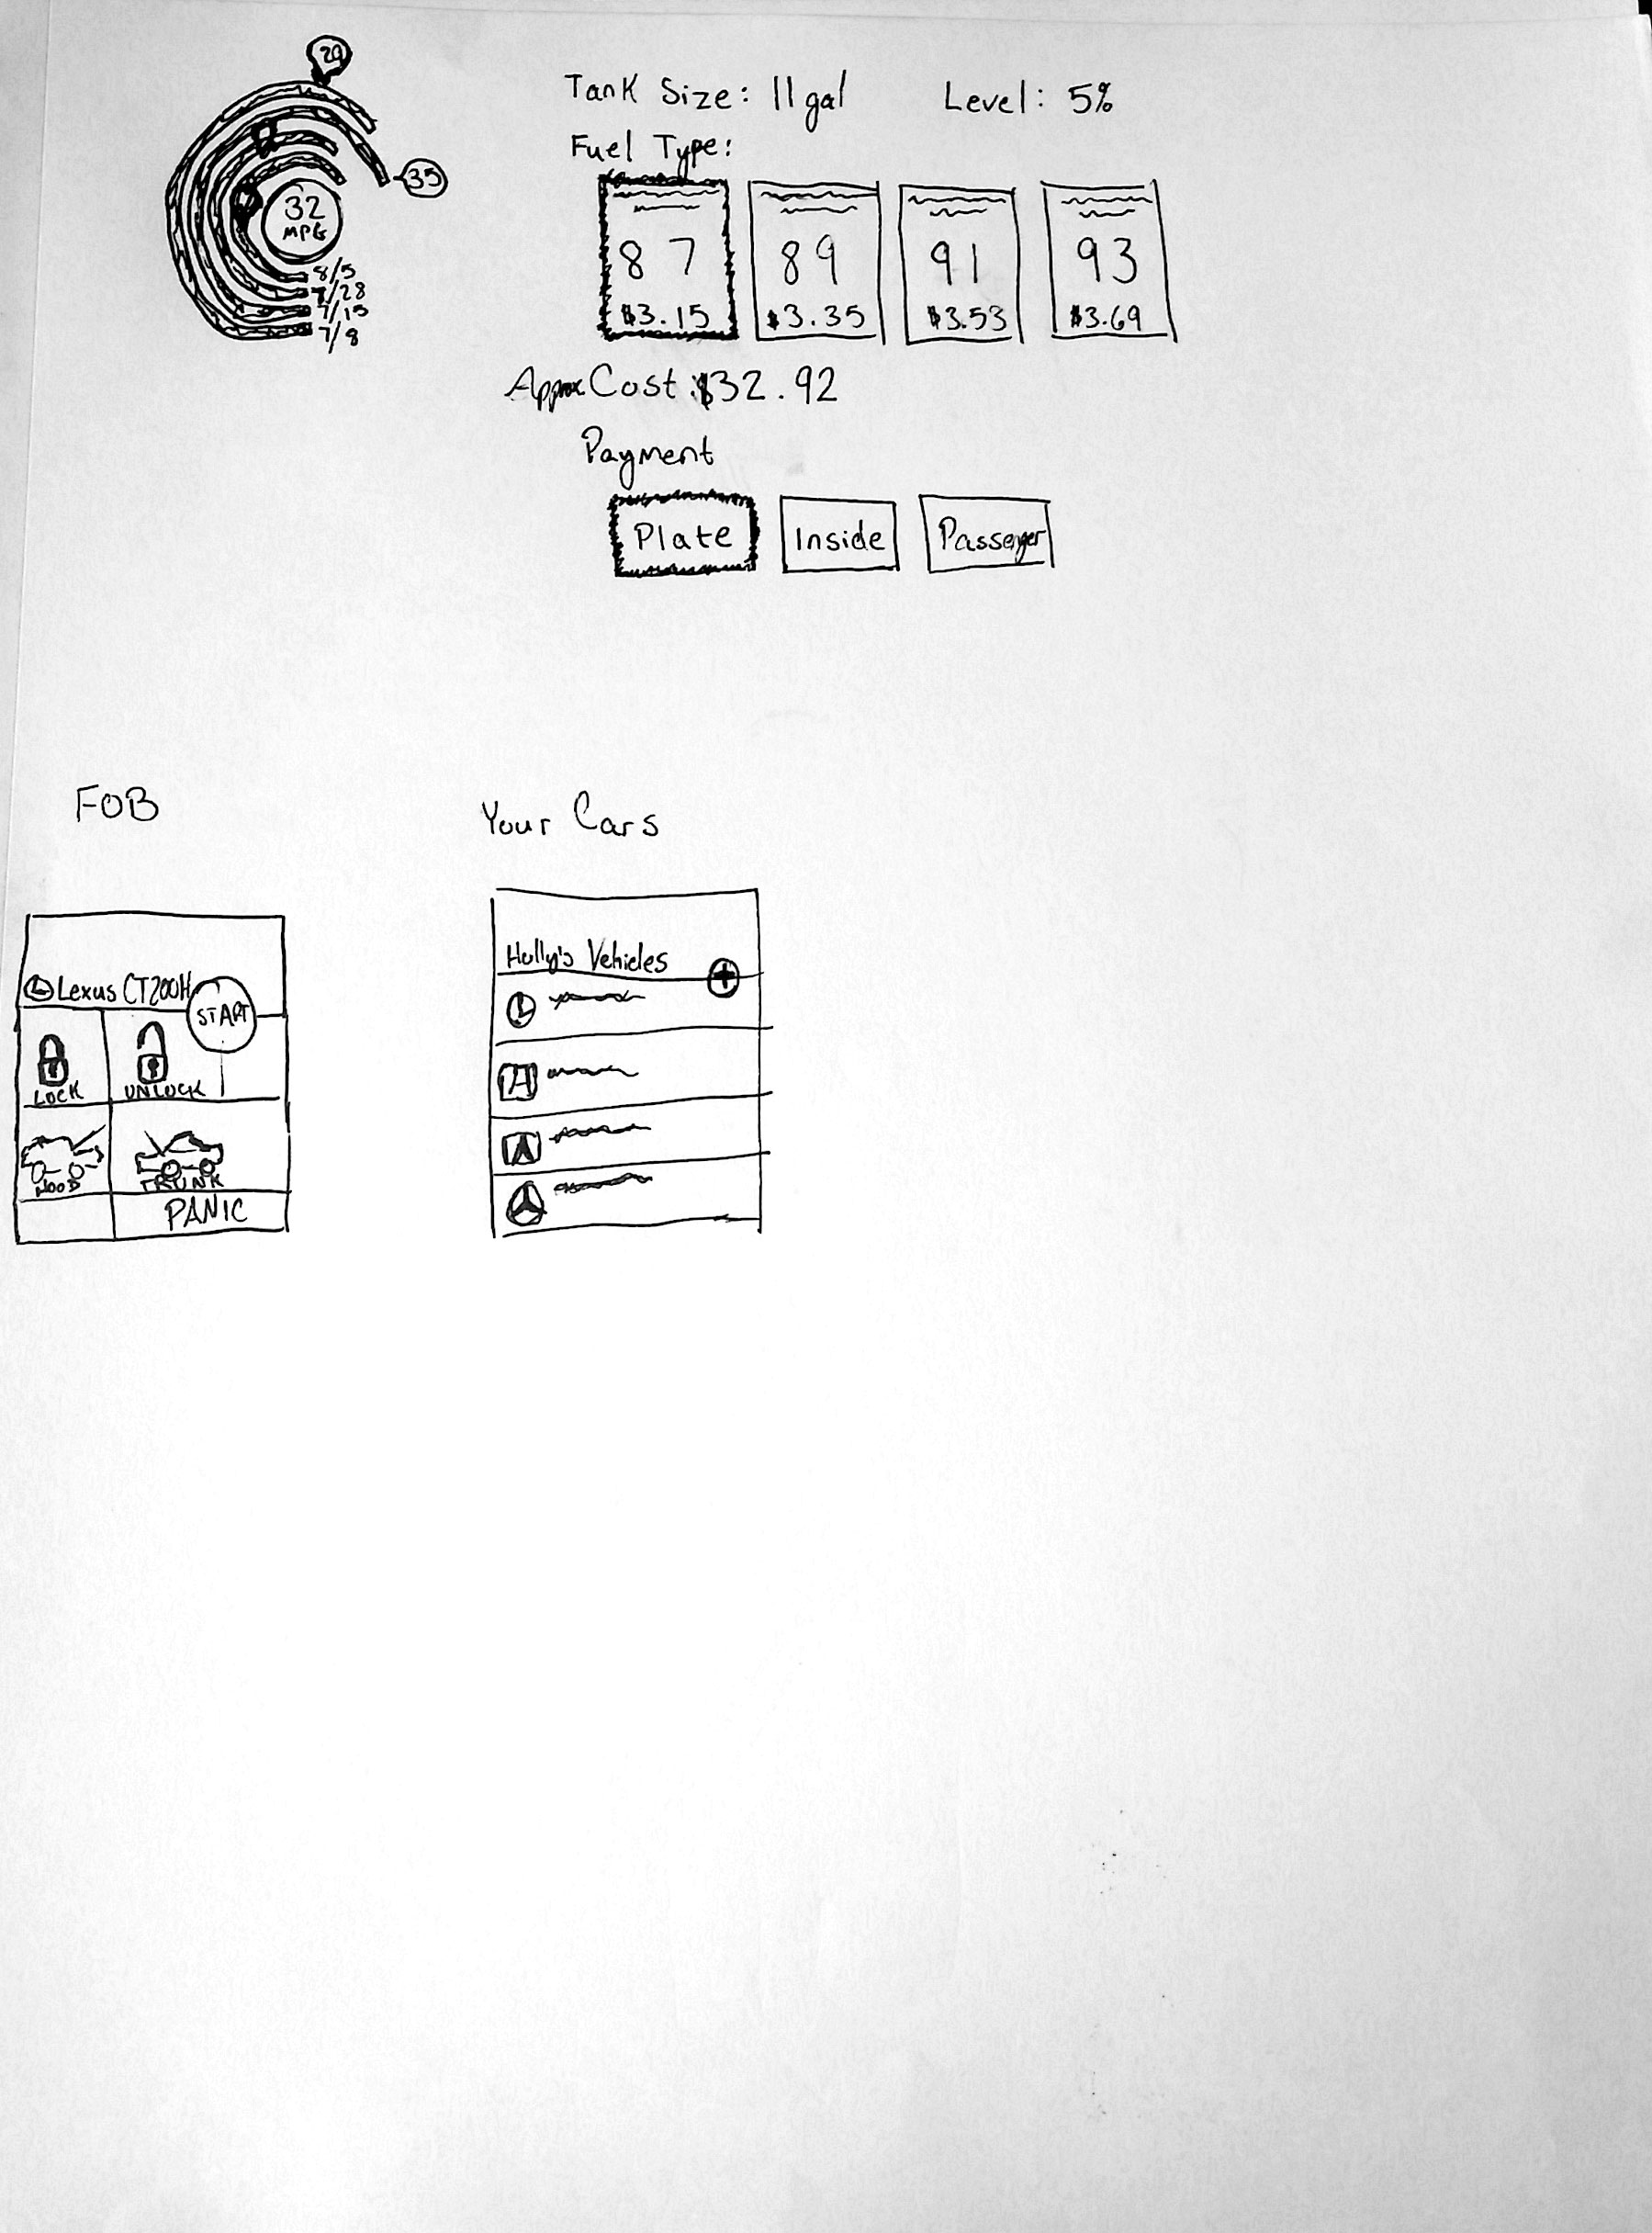 29
35
32
MPG
8/5
7/28
7/15
7/8
Tank Size: 11 gal Level: 5%
Fuel Type:
87 89 91 93
$3.15 $3.35 $3.53 $3.69
Approx. Cost: $32.92
Payment
Plate Inside Passenger
FOB
Lexus CT200H
START
LOCK UNLOCK
HOOD TRUNK
PANIC
Your Cars
Holly's Vehicles
+
L
H
A